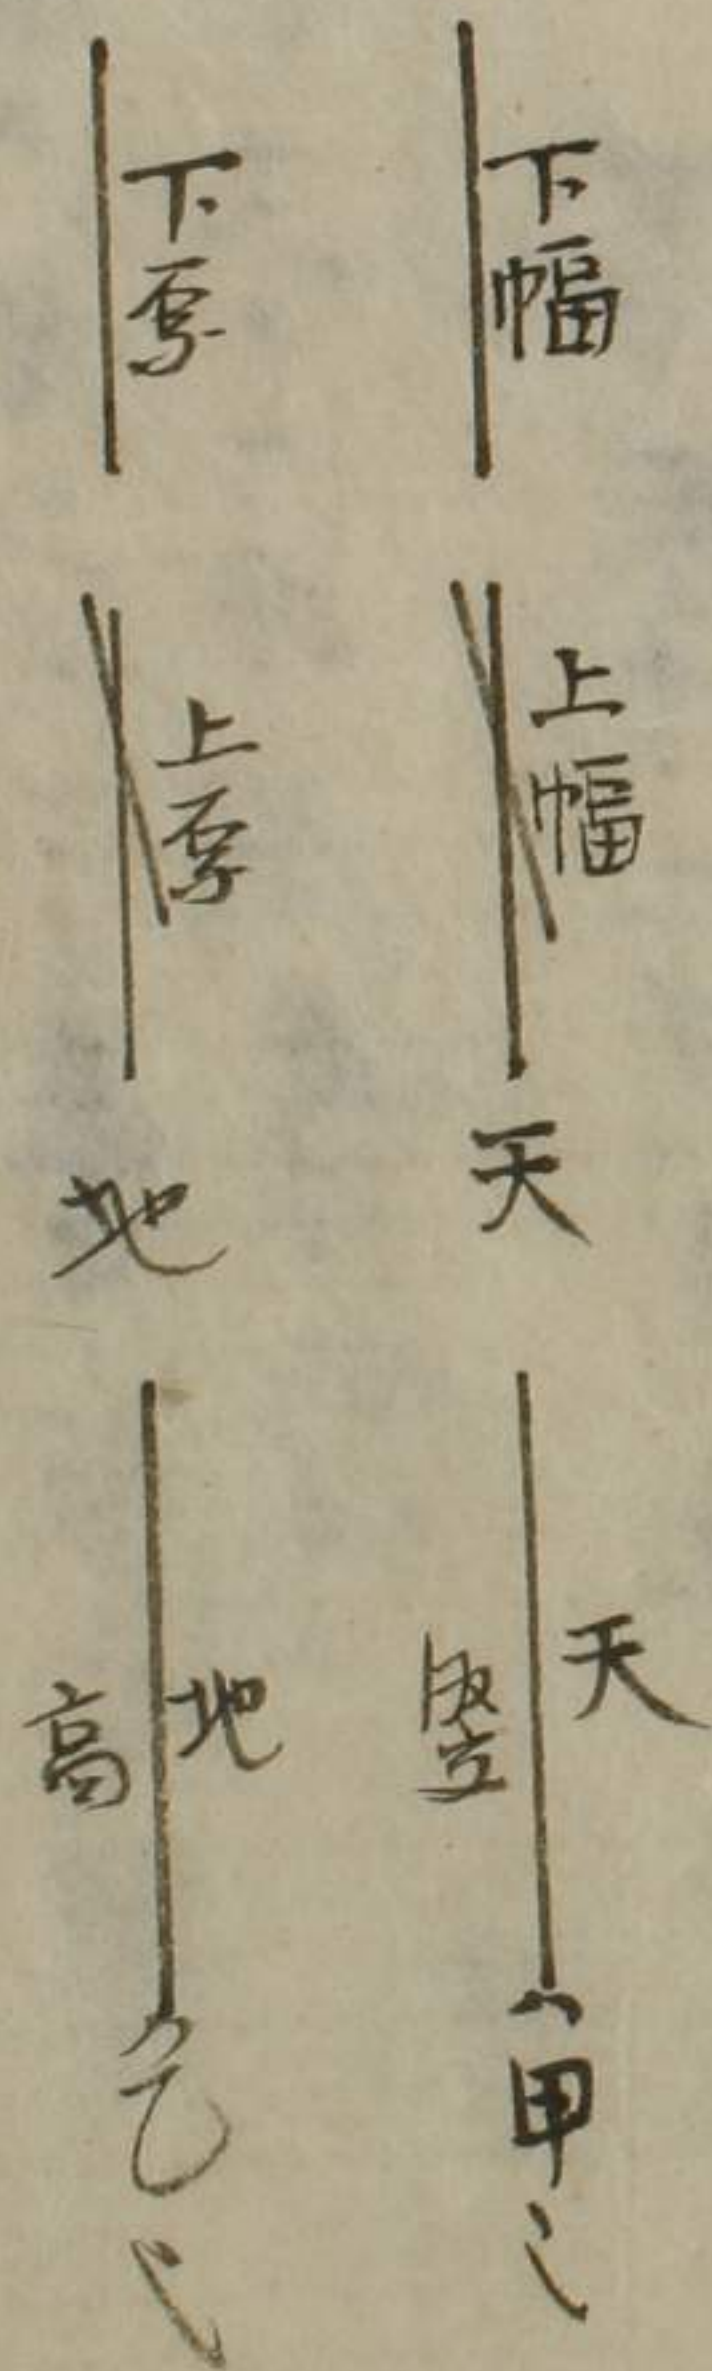 下幅 上幅 天 天 竪 甲
下厚 上厚 地 地 高 乙